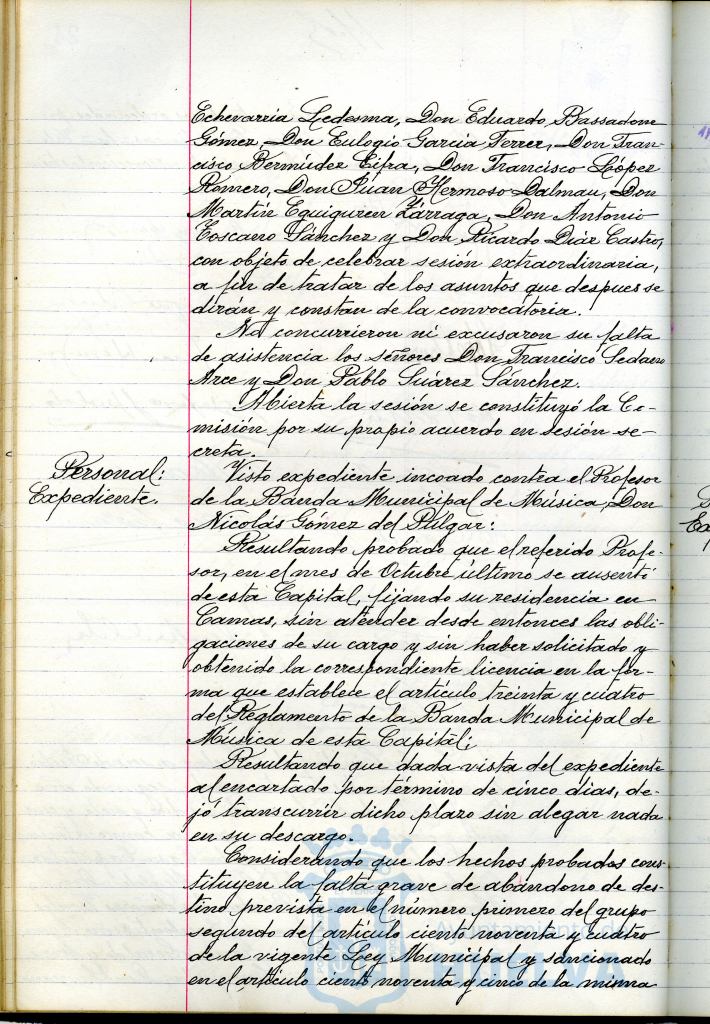 Echevarria Ledesma, Don Eduardo Bassadone
Gómez, Don Eulogio Garcia Ferrer, Don Fran-
cisco Bermúdez Cifra, Don Francisco López
Romero, Don Juan Hermoso Dalmau, Don
Martín Eguiguren Zárraga, Don Antonio
Toscano Sánchez y Don Ricardo Diáz Castro,
con objeto de celebrar sesión extraordinaria,
a fin de tratar de los asuntos que despues se
dirán y constan de la convocatoria.
No concurrieron ni excusaron su falta
de asistencia los señores Don Francisco Sedano
Arce y Don Pablo Suárez Sánchez.
Abierta la sesión se constituyó la Co-
misión por su propio acuerdo en sesión se-
creta.
Personal:
Expediente.
Visto expediente incoado contra el Profesor
de la Banda Municipal de Música, Don
Nicolás Gómez del Pulgar:
Resultando probado que el referido Profe-
sor, en el mes de Octubre último se ausentó
de esta Capital, fijando su residencia en
Camas, sin atender desde entonces las obli-
gaciones de su cargo y sin haber solicitado y
obtenido la correspondiente licencia en la for-
ma que establece el artículo treinta y cuatro
del Reglamento de la Banda Municipal de
Música de esta Capital;
Resultando que dada vista del expediente
al encartado por término de cinco dias, de-
jó transcurrir dicho plazo sin alegar nada
en su descargo.
Considerando que los hechos probados cons-
tituyen la falta grave de abandono de des-
tino prevista en el número primero del grupo
segundo del artículo ciento noventa y cuatro
de la vigente Ley Municipal y sancionado
en el artículo ciento noventa y cinco de la misma
Ayuntamiento de
HUELVA